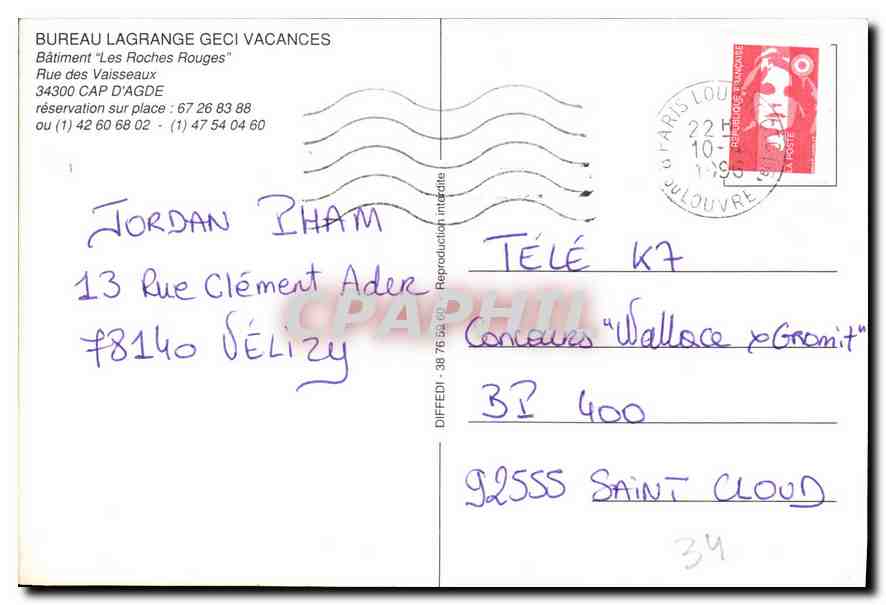 BUREAU LAGRANGE GECI VACANCES
Bâtiment "Les Roches Rouges"
Rue des Vaisseaux
34300 CAP D'AGDE
réservation sur place : 67 26 83 88
ou (1) 42 60 68 02 - (1) 47 54 04 60
JORDAN PHAM
13 Rue Clément Ader
78140 VÉLIZY
DIFFEDI - 38 76 59 60 - Reproduction interdite
RÉPUBLIQUE FRANÇAISE
LA POSTE
PARIS LOUVRE
22H
10-
LOUVRE
TÉLÉ K7
Concours "Wallace & Gromit"
BP 400
92555 SAINT CLOUD
34
CPAPHIL